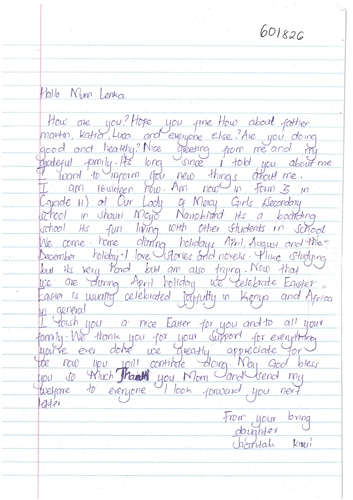 601826
Hallo Mum Lenka.
How are you? Hope you fine. How about father
martin, Katie, Luca and everyone else? Are you doing
good and healthy? Nice greeting from me and my
grateful family. Its long since I told you about me
I want to inform you new things about me.
I am 16 now. Am now in Form 3 in
(Grade 11) at Our Lady of Mercy Girls Secondary
school in Nairobi Its a boarding
school Its fun living with other students in school
We come home during holidays April, August and the
December holiday. I love stories and novels. I like studying
but its very hard but am also trying. Now that
we are during April holiday we celebrate Easter.
Easter is usually celebrated joyfully in Kenya and Africa
in general
I wish you a nice Easter for you and to all your
family. We thank you for your support for everything
you've ever done we greatly appreciate for
we now you will continue doing May God bless
you so Much Thanks you Mom and send my
welfare to everyone I look forward you next
letter
From your loving
daughter